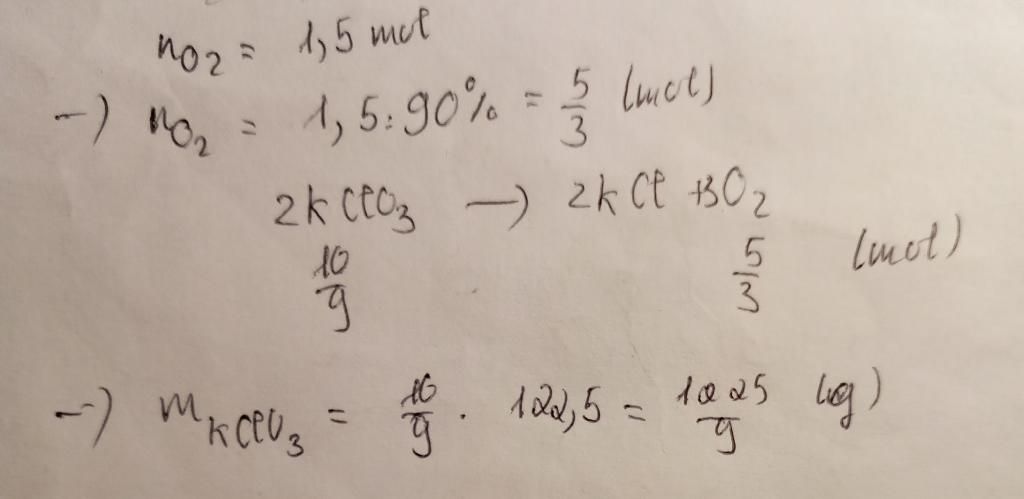 nO2 = 1,5 mol
-) nO2 = 1,5:90% = 5/3 (mol)
2KClO3 → 2KCl + 3O2
10/9 5/3 (mol)
-) mKClO3 = 10/9 . 122,5 = 1225/9 (g)